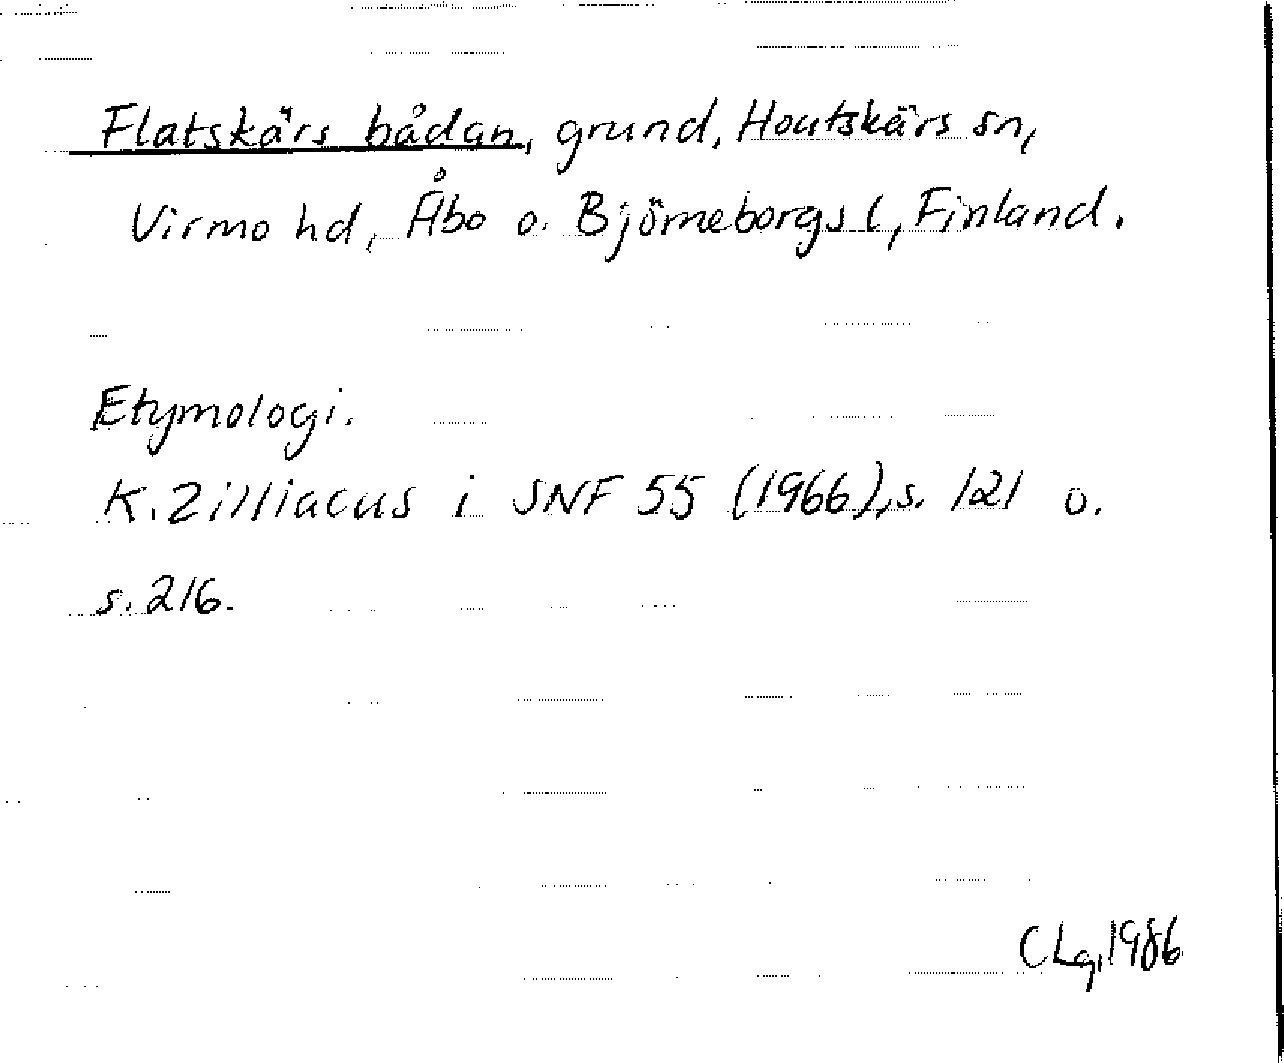 Flatskärs bådan, grund, Houtskärs sn,
Virmo hd, Åbo o. Björneborgs l, Finland.
Etymologi.
K. Zilliacus i SNF 55 (1966), s. 121 o.
s. 216.
CLg, 1986